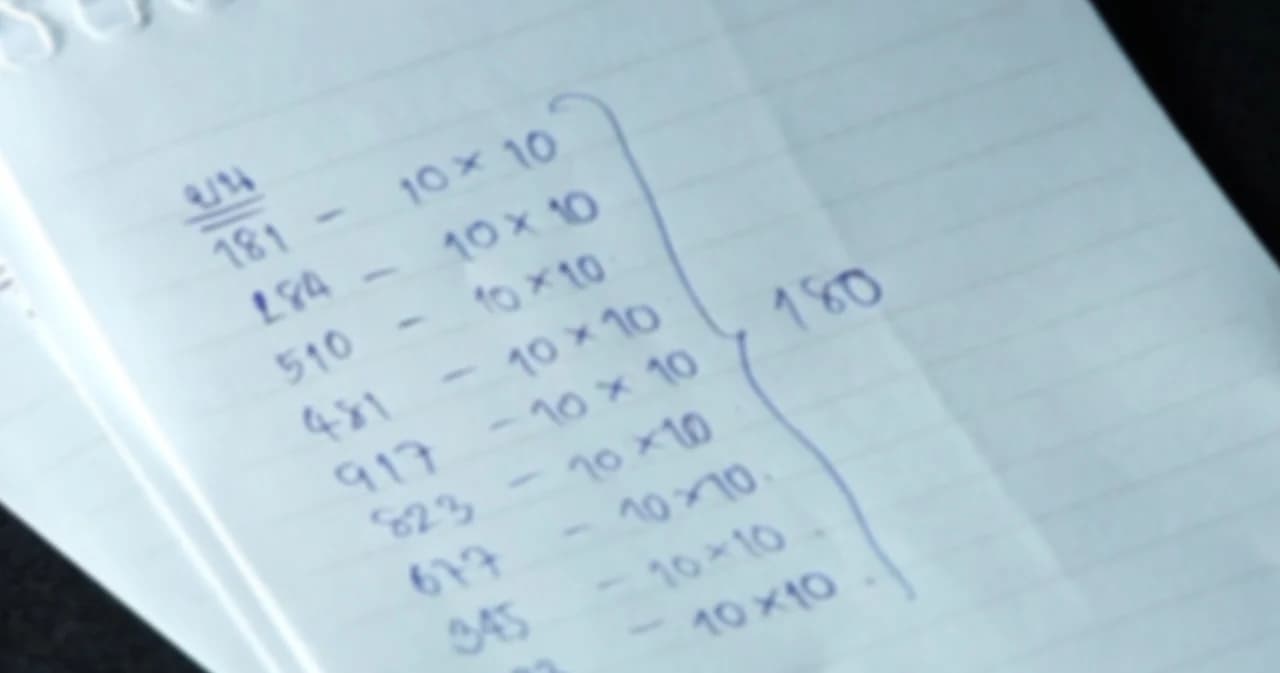 บน
181 - 10 × 10
284 - 10 × 10
510 - 10 × 10
481 - 10 × 10
917 - 10 × 10
823 - 10 × 10
677 - 10 × 10
345 - 10 × 10
- 10 × 10
180